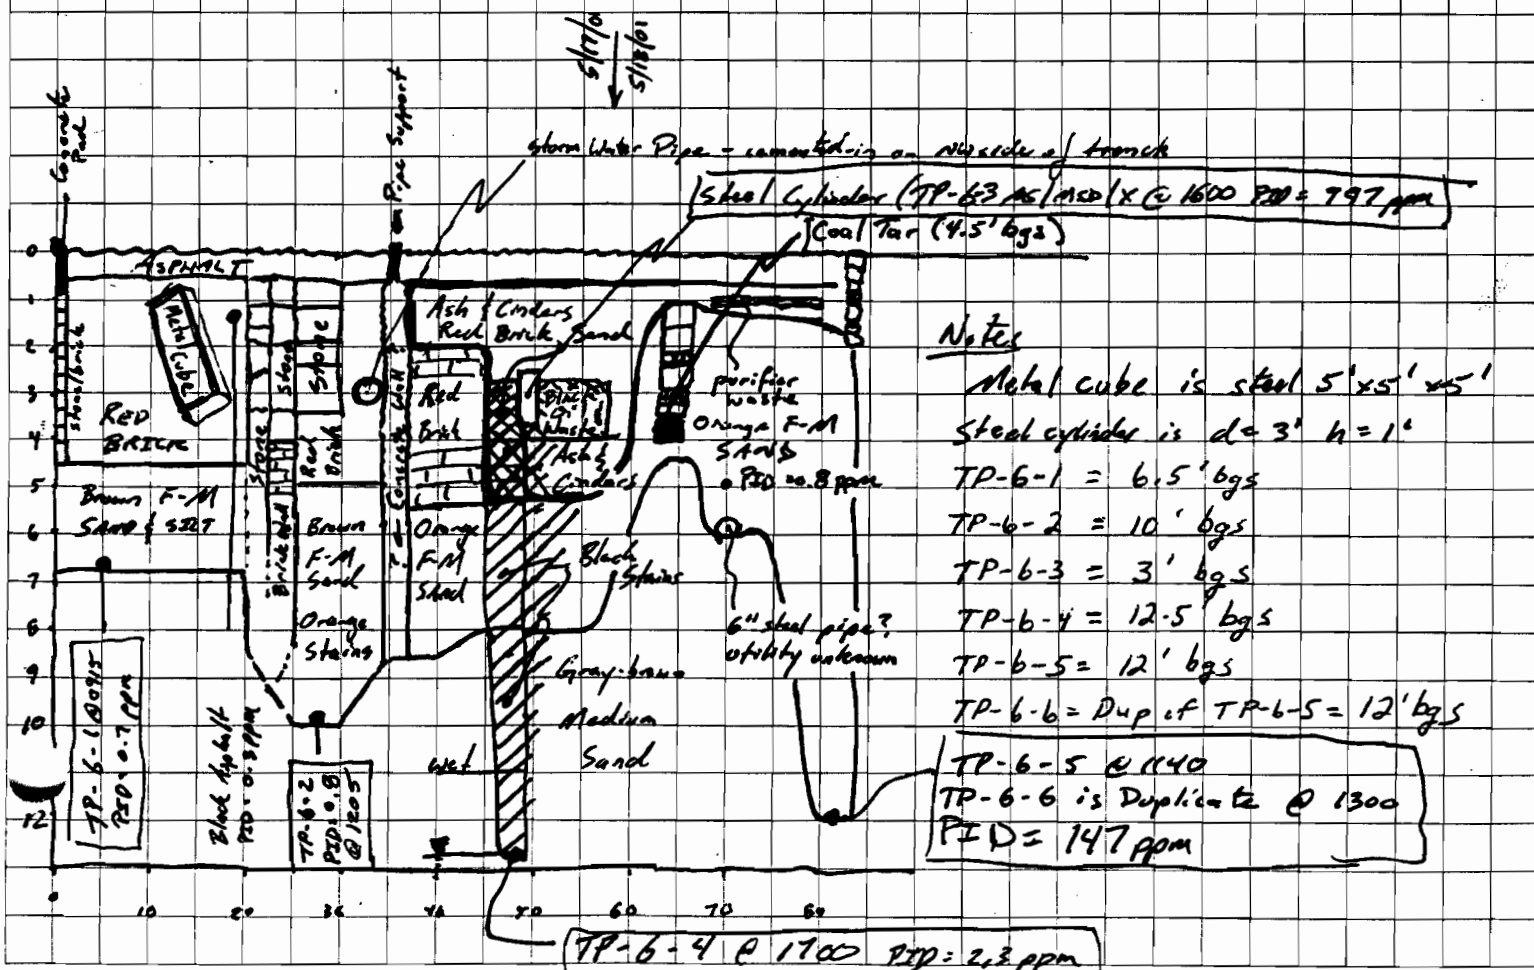 5/17/01
5/18/01
Concrete Pad
Pipe Support
Storm Water Pipe - cemented-in on NW side of trench
Steel Cylinder (TP-6-3 MS/MSD/X @ 1600 PID = 797 ppm
Coal Tar (4.5' bgs)
0
ASPHALT
1
2
3
4
5
6
7
8
9
10
12
stone/brick
Metal Cube
RED
BRICK
Brown F-M
SAND & SILT
Stone
Brick Wall
Stone
Stone
Red
Brick
Brown
F-M
Sand
Orange
Stains
? ← Concrete Wall ?
Ash & Cinders
Red Brick Sand
Red
Brick
Orange
F-M
Sand
Ash &
Cinders
Black
Stains
Gray-brown
Medium
Sand
wet
purifier
waste
Orange F-M
SANDS
PID = 0.8 ppm
6" steel pipe?
utility unknown
TP-6-1 @ 0915
PID = 0.7 ppm
Black Asphalt
PID = 0.3 ppm
TP-6-2
PID = 0.8
@ 1205
0 10 20 30 40 50 60 70 80
TP-6-4 @ 1700 PID = 2.3 ppm
Notes
Metal cube is steel 5'x5'x5'
Steel cylinder is d= 3' h= 1'
TP-6-1 = 6.5' bgs
TP-6-2 = 10' bgs
TP-6-3 = 3' bgs
TP-6-4 = 12.5' bgs
TP-6-5 = 12' bgs
TP-6-6 = Dup of TP-6-5 = 12' bgs
TP-6-5 @ 1140
TP-6-6 is Duplicate @ 1300
PID = 147 ppm